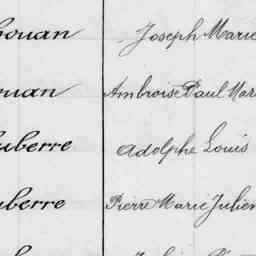 couan Joseph Marie
ouan Ambroise Paul Mar
uberre Adolphe Louis
uberre Pierre Marie Julien